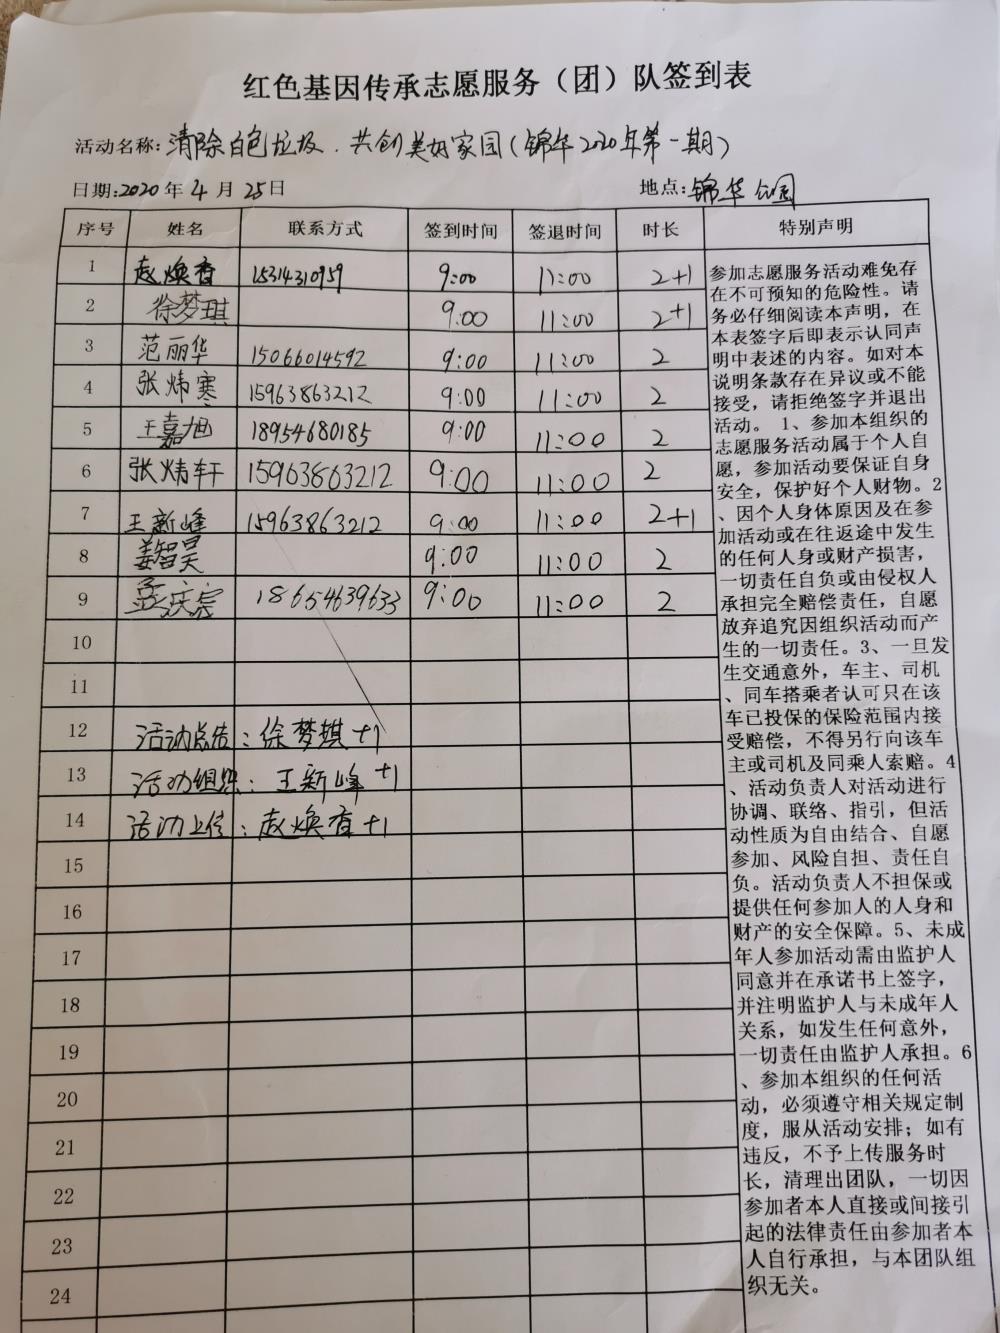 红色基因传承志愿服务（团）队签到表
活动名称:清除白色垃圾.共创美好家园(锦华2020年第一期)
日期:2020年4月25日 地点:锦华公园
序号 姓名 联系方式 签到时间 签退时间 时长 特别声明
1 赵焕香 15314310959 9:00 11:00 2+1
2 徐梦琪 9:00 11:00 2+1
3 范丽华 15066014592 9:00 11:00 2
4 张炜寒 15963863212 9:00 11:00 2
5 王嘉旭 18954680185 9:00 11:00 2
6 张炜轩 15963863212 9:00 11:00 2
7 王新峰 15963863212 9:00 11:00 2+1
8 姜智昊 9:00 11:00 2
9 孟庆宗 18654639633 9:00 11:00 2
10
11
12 活动总结:徐梦琪+1
13 活动组织:王新峰+1
14 活动上传:赵焕香+1
15
16
17
18
19
20
21
22
23
24
参加志愿服务活动难免存
在不可预知的危险性。请
务必仔细阅读本声明，在
本表签字后即表示认同声
明中表述的内容。如对本
说明条款存在异议或不能
接受，请拒绝签字并退出
活动。 1、参加本组织的
志愿服务活动属于个人自
愿，参加活动要保证自身
安全，保护好个人财物。2
、因个人身体原因及在参
加活动或在往返途中发生
的任何人身或财产损害，
一切责任自负或由侵权人
承担完全赔偿责任，自愿
放弃追究因组织活动而产
生的一切责任。3、一旦发
生交通意外，车主、司机
、同车搭乘者认可只在该
车已投保的保险范围内接
受赔偿，不得另行向该车
主或司机及同乘人索赔。4
、活动负责人对活动进行
协调、联络、指引，但活
动性质为自由结合、自愿
参加、风险自担、责任自
负。活动负责人不担保或
提供任何参加人的人身和
财产的安全保障。5、未成
年人参加活动需由监护人
同意并在承诺书上签字，
并注明监护人与未成年人
关系，如发生任何意外，
一切责任由监护人承担。6
、参加本组织的任何活
动，必须遵守相关规定制
度，服从活动安排；如有
违反，不予上传服务时
长，清理出团队，一切因
参加者本人直接或间接引
起的法律责任由参加者本
人自行承担，与本团队组
织无关。